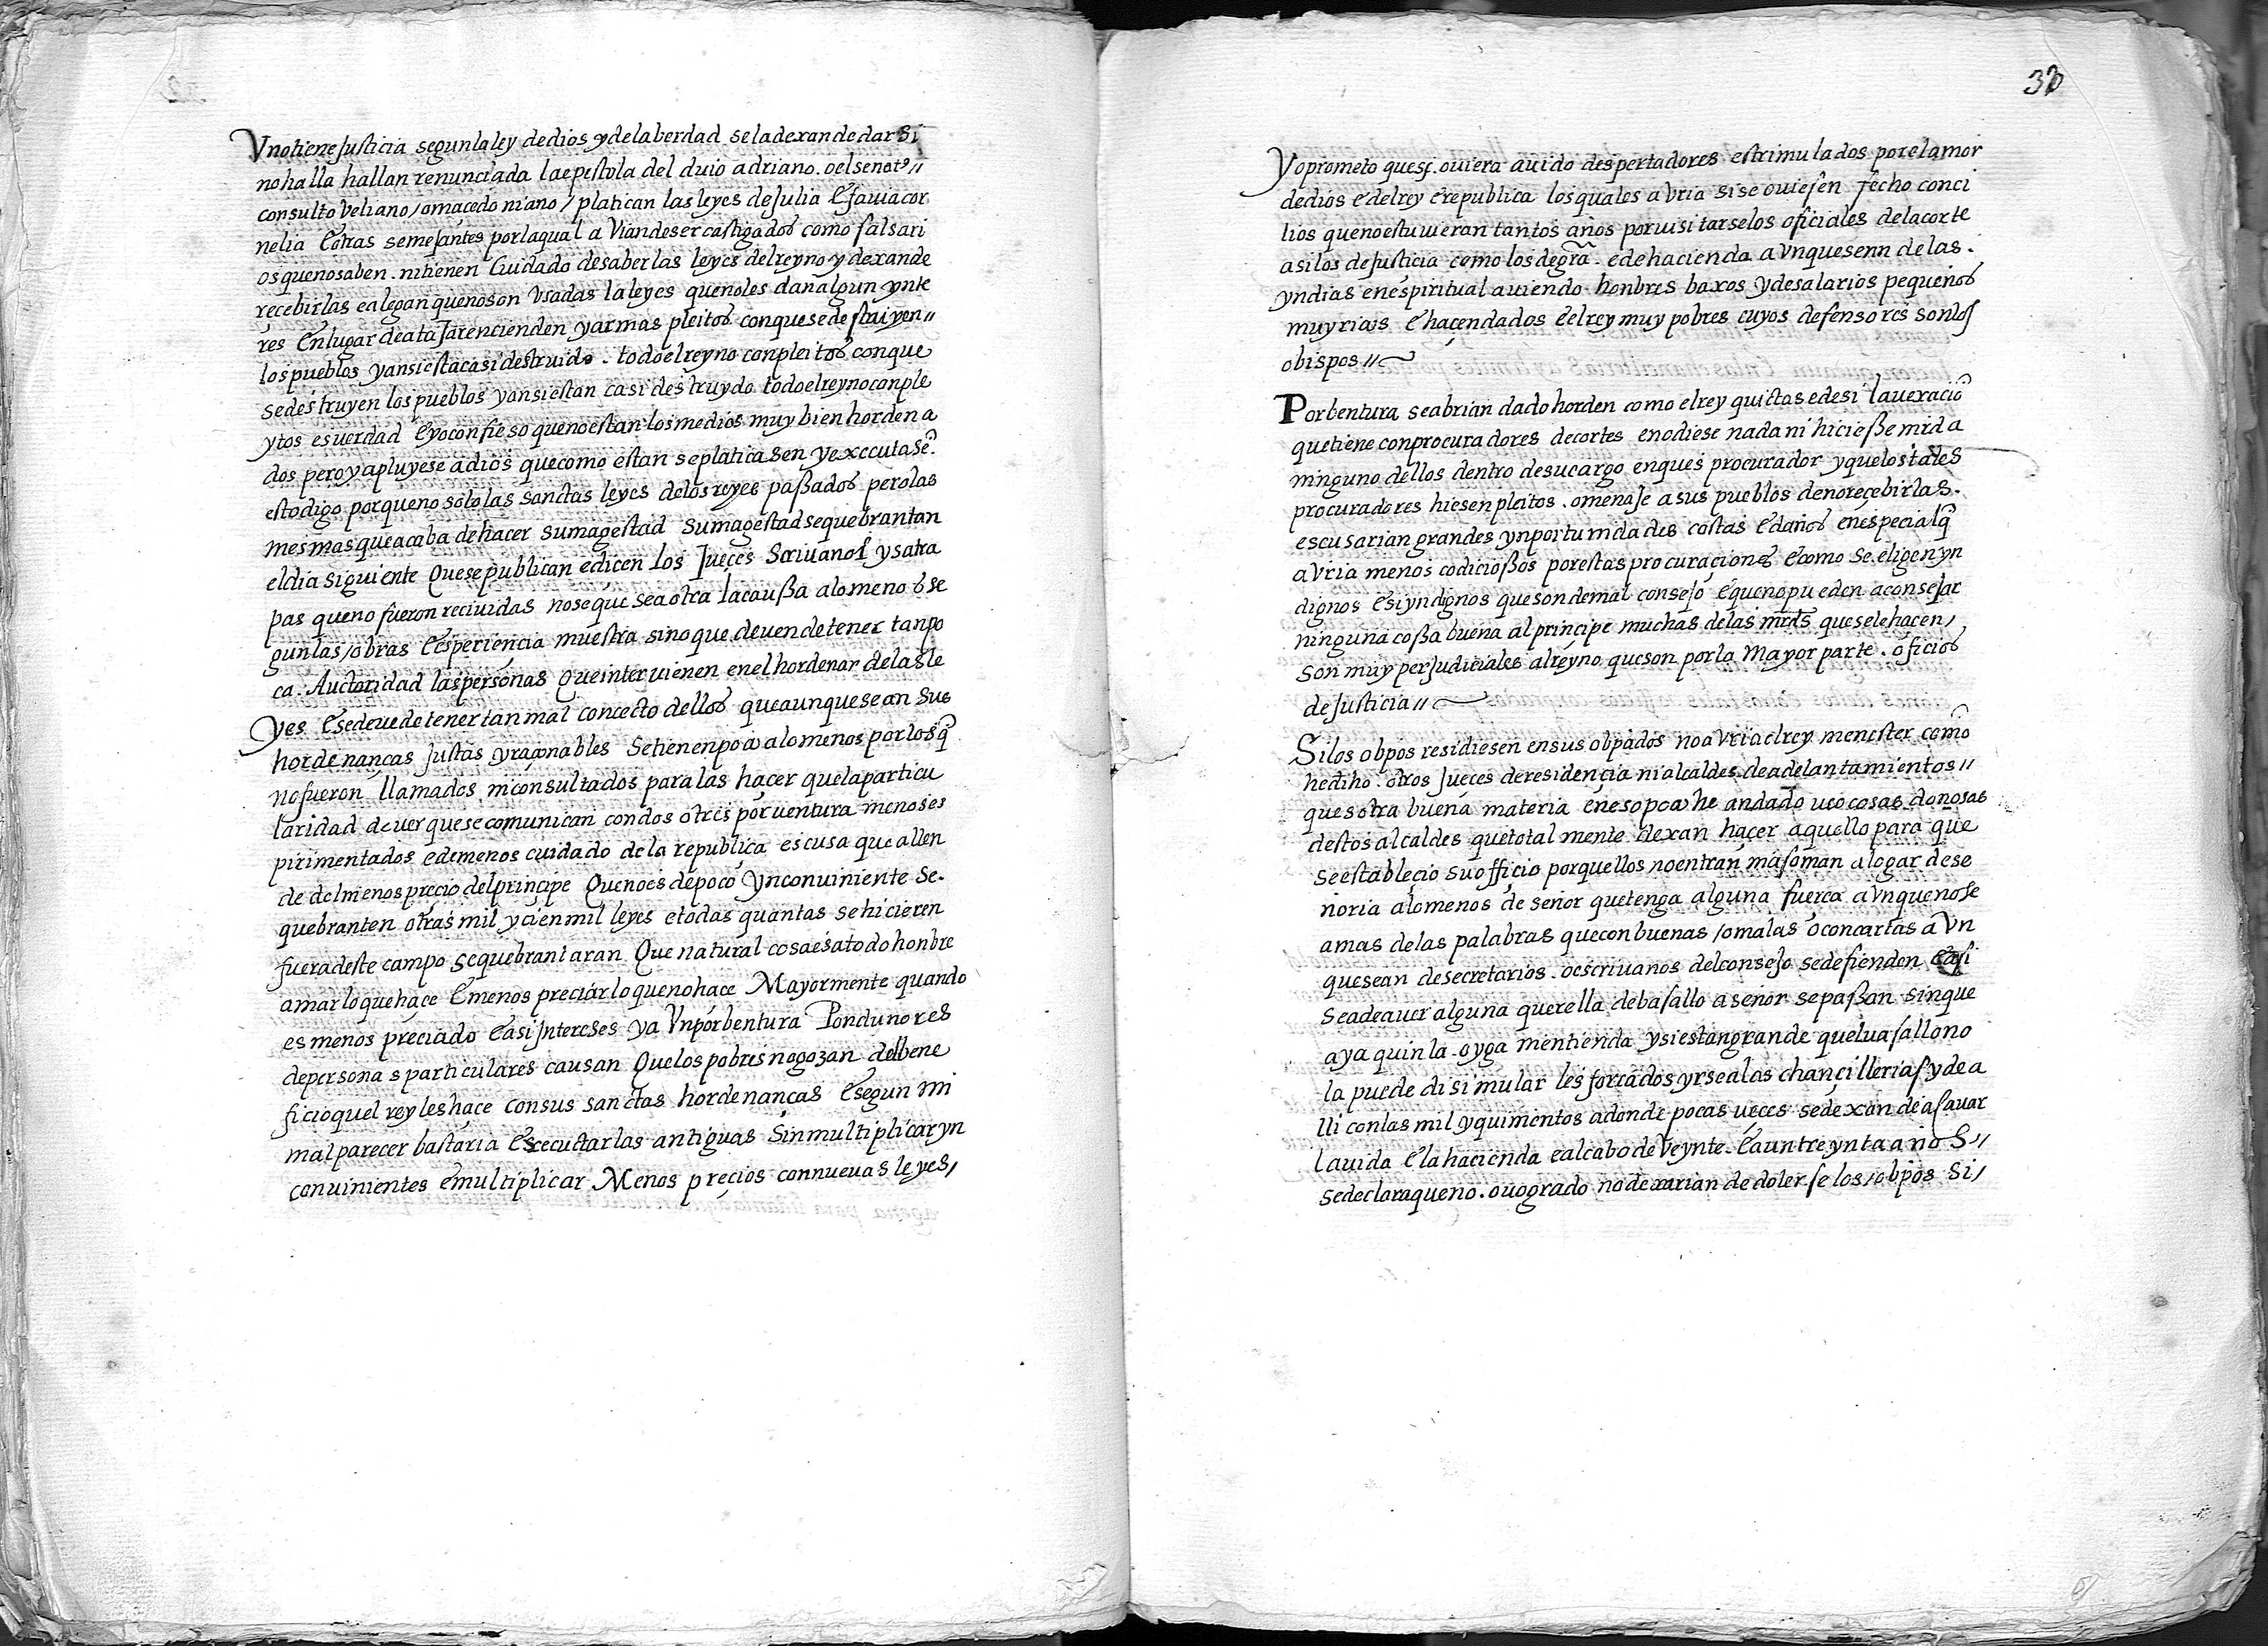 Vno tiene Justicia segun la ley de dios y de la berdad se la dexan de dar si
no halla hallan renunciada la epestola del duio adriano. o el senat9//
consulto Veliano / o maçedoniano / platican las leyes de Julia E favia cor
nelia E otras semeJantes por la qual aVian de ser castigados como falsari
os que no saben. ni tienen Cuidado de saber las leyes del reyno y dexan de
recebirlas e alegan que no son Vsadas la leyes que no les dan algun ynte
res En lugar de ataJar encienden y armas pleitos con que se destruiyen//
los pueblos y ansi esta casi destruido. todo el reyno con pleitos con que
se destruyen los pueblos y ansi estan casi destruydo todo el reyno con ple
ytos es verdad E yo confieso que no estan los medios muy bien hordena
dos pero ya pluyese a dios que como estan se platicasen y exccutasē.
esto digo porque no solo las sanctas leyes de los reyes paßados pero las
mesmas que acaba de hacer su magestad su magestad se quebrantan
el dia siguiente Que se publican e dicen los Jueçes Scriuanos y satra
pas que no fueron reciuidas no se que sea otra la caußa alomenos se
gun las / obras E esperiençia muestra sino que deuen de tener tan po
ca. Auctoridad las personas Que interuienen en el hordenar de las le
yes E se deue de tener tan mal concecto dellos que aunque sean sus
hordenanças Justas y raçonables se tienen poco alomenos por los q̃
no fueron llamados ni consultados para las hacer que la particu
laridad de ver que se comunican con dos o tres por ventura menos es
pirimentados e de menos cuidado de la republica es cusa que allen
de del menos preçio del prinçipe Que no es de poco ynconuiniente se.
quebranten otras mil y çien mil leyes e todas quantas se hicieren
fuera deste campo se quebrantaran Que natural cosa es a todo honbre
amar lo que haçe E menos preciar lo que no hace Mayormente quando
es menos preciado E asi Intereses y aVn por bentura Pondunores
de personas particulares causan Que los pobres no gozan del bene
ficio quel rey les hace con sus sanctas hordenanças E segun mi
mal parecer bastaria Execuctar las antiguas Sin multiplicar yn
conuinientes E multiplicar Menos preçios con nuevas leyes,
33
Yo prometo que si. oviera auido despertadores estrimulados por el amor
de dios e del rey E republica los quales aVria si se oviesen fecho conci
lios que no estuuieran tantos años por visitarse los ofiçiales de la corte
asi los de Justicia como los de gr̃a. e de hacienda aVnque sean de las.
yndias en espiritual auiendo honbres baxos y de salarios pequeños
muy ricos E hacendados E el rey muy pobres cuyos defensores son los
obispos //
Por bentura se abrian dado horden como el rey quictase de si la vexaciõ
que tiene con procuradores de cortes e no diese nada ni hicieße mrd a
ninguno dellos dentro de su cargo en ques procurador y que los tales
procuradores hiesen pleitos. omenaJe a sus pueblos de no reçebirlas.
escusarian grandes ynportunidades costas E daños en especial q̃
aVria menos codicioßos por estas procuraciones E como se. eligen yn
dignos E si yndignos que son de mal consejo E que no pueden aconseJar
ninguna coßa buena al principe muchas de las mrds que se le hacen,
son muy perJudiciales al reyno que son por la Mayor parte. ofiçios
de Justicia //
Si los obpos residiesen en sus obpados no aVria el rey menester comõ
he dicho. otros Jueces de residençia ni alcaldes. de adelantamientos //
ques otra buena materia en eso poco he andado veo cosas donosas
destos alcaldes que total mente dexan haçer aquello para que
se estableçio su officio porquellos no entran mas oman a logar de se
ñoria alomenos de señor que tenga alguna fuerça aVnque no se
a mas de las palabras que con buenas / o malas o con cartas aVn
que sean de secretarios. o escriuanos del consejo se defienden E asi
se a de aver alguna querella de basallo a señor se paßan sin que
aya quin la. oyga ni entienda y si es tan grande quel vasallo no
la puede disimular les forcado yrse a las chançillerias y de a
lli con las mil y quimentos a donde pocas veçes se dexan de asauar
la vida E la hacienda e al cabo de Veynte. E aun treynta años //
se declara que no. ovo grado no dexarian de dolerse los / obpos si /